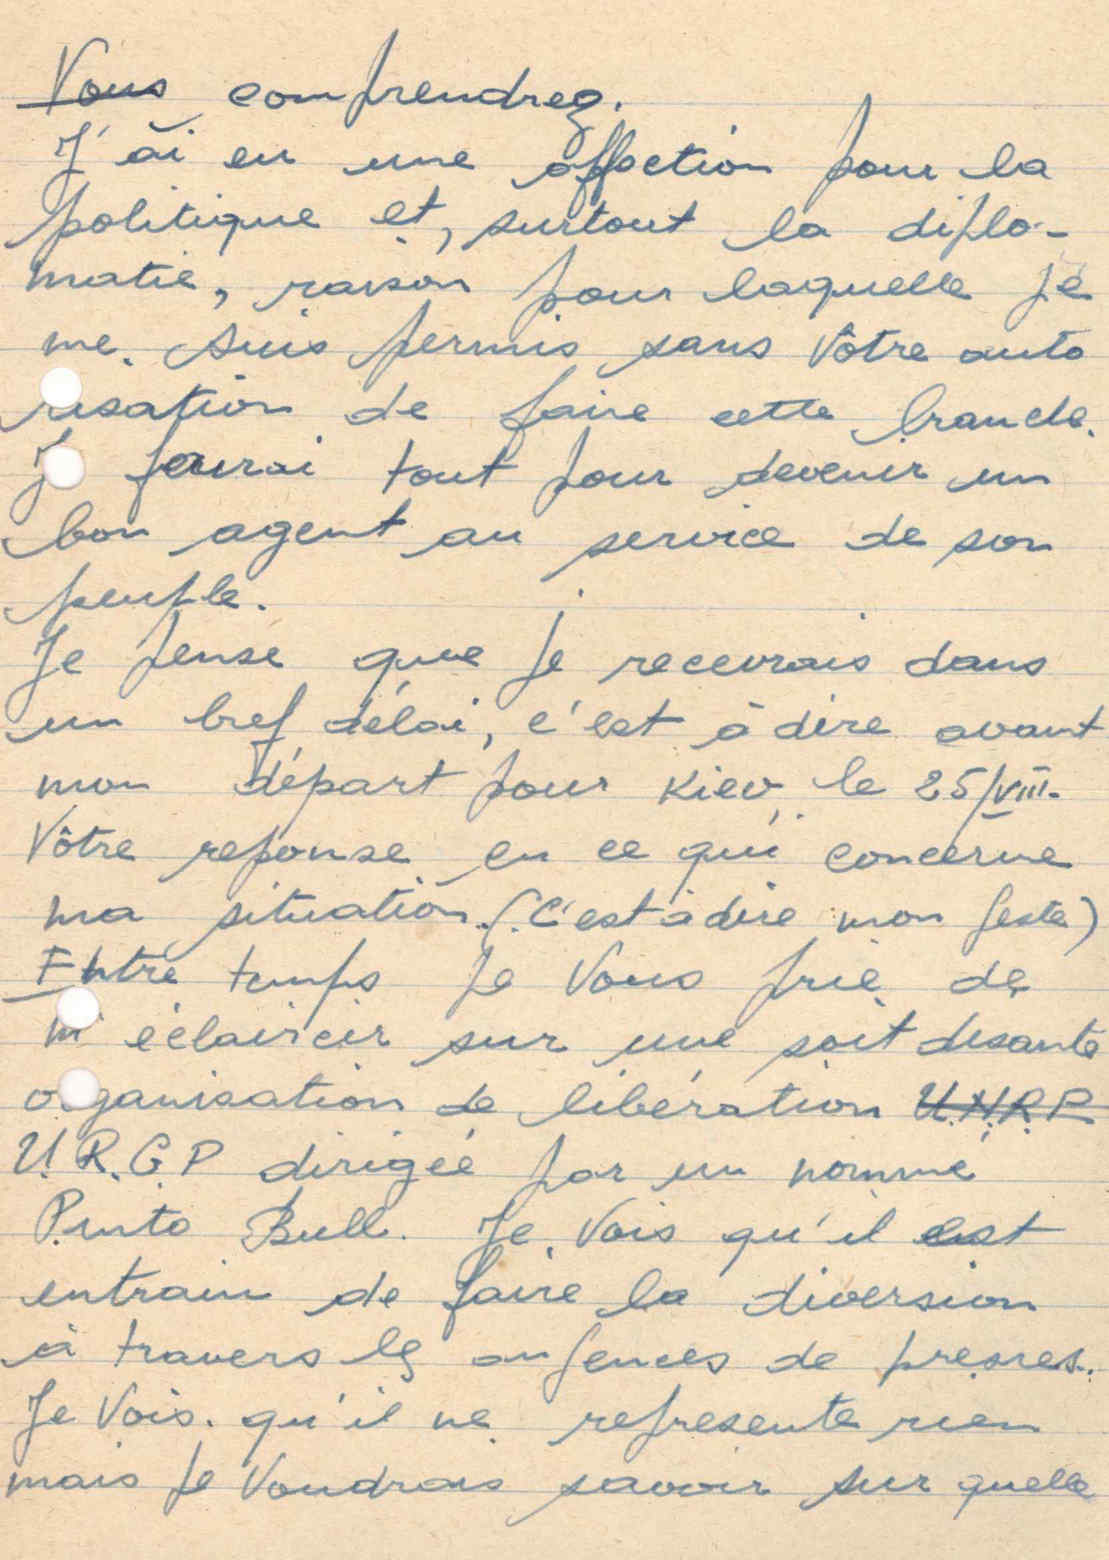 Vous comprendrez.
J'ai eu une affection pour la
politique et, surtout la diplo-
matie, raison pour laquelle je
me suis permis sans Vôtre auto
risation de faire cette branche.
J ferai tout pour devenir un
bon agent au service de son
peuple.
Je pense que je recevrais dans
un bref délai, c'est à dire avant
mon départ pour Kiev le 25/VIII.
Vôtre reponse en ce qui concerne
ma situation. (C'est à dire mon geste)
Entre temps je Vous prie de
m'éclaircir sur une soit disante
organisation de libération U.N.R.P
U.R.G.P dirigée par un nommé
Pinto Bull. Je Vois qu'il est
entrain de faire la diversion
à travers les agences de presses.
Je Vois qu'il ne represente rien
mais je Voudrais savoir sur quelle